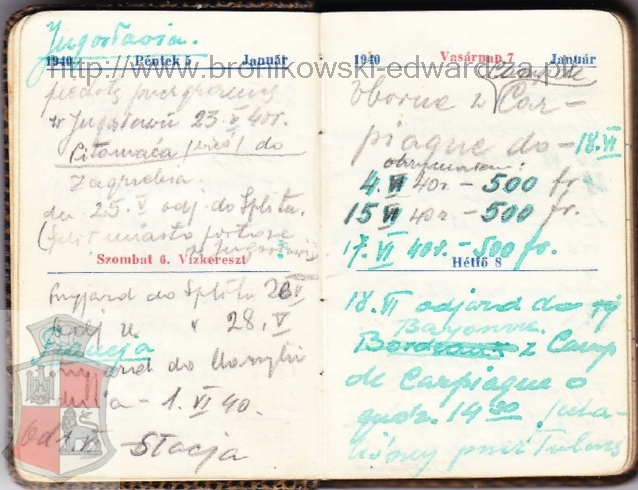 Jugosławia.
1940 Péntek 5 Január
http://www.bronikowski-edward.za.pl
w Jugosławii 23.V 40r.
Pitomača (wieś) do
Zagrzebia.
dn. 25.V odj. do Splitu.
(Split miasto portowe
w Jugosławii)
Szombat 6. Vízkereszt
Przyjazd do Splitu 26 V
Odj z " 28.V
Francja
do Marsylii
dnia - 1. VI 40.
Od 1.VI Stacja
1940 Vasárnap 7 Január
Zborna z Car-
piague do - 18.VI
otrzymałem:
4.VI 40r. - 500 fr.
15 VI 40r - 500 fr.
17.VI 40r. - 500 fr.
Hétfő 8
18.VI odjazd do
Bayonne.
Bordeaux z Camp
de Carpiague o
godz. 14 30